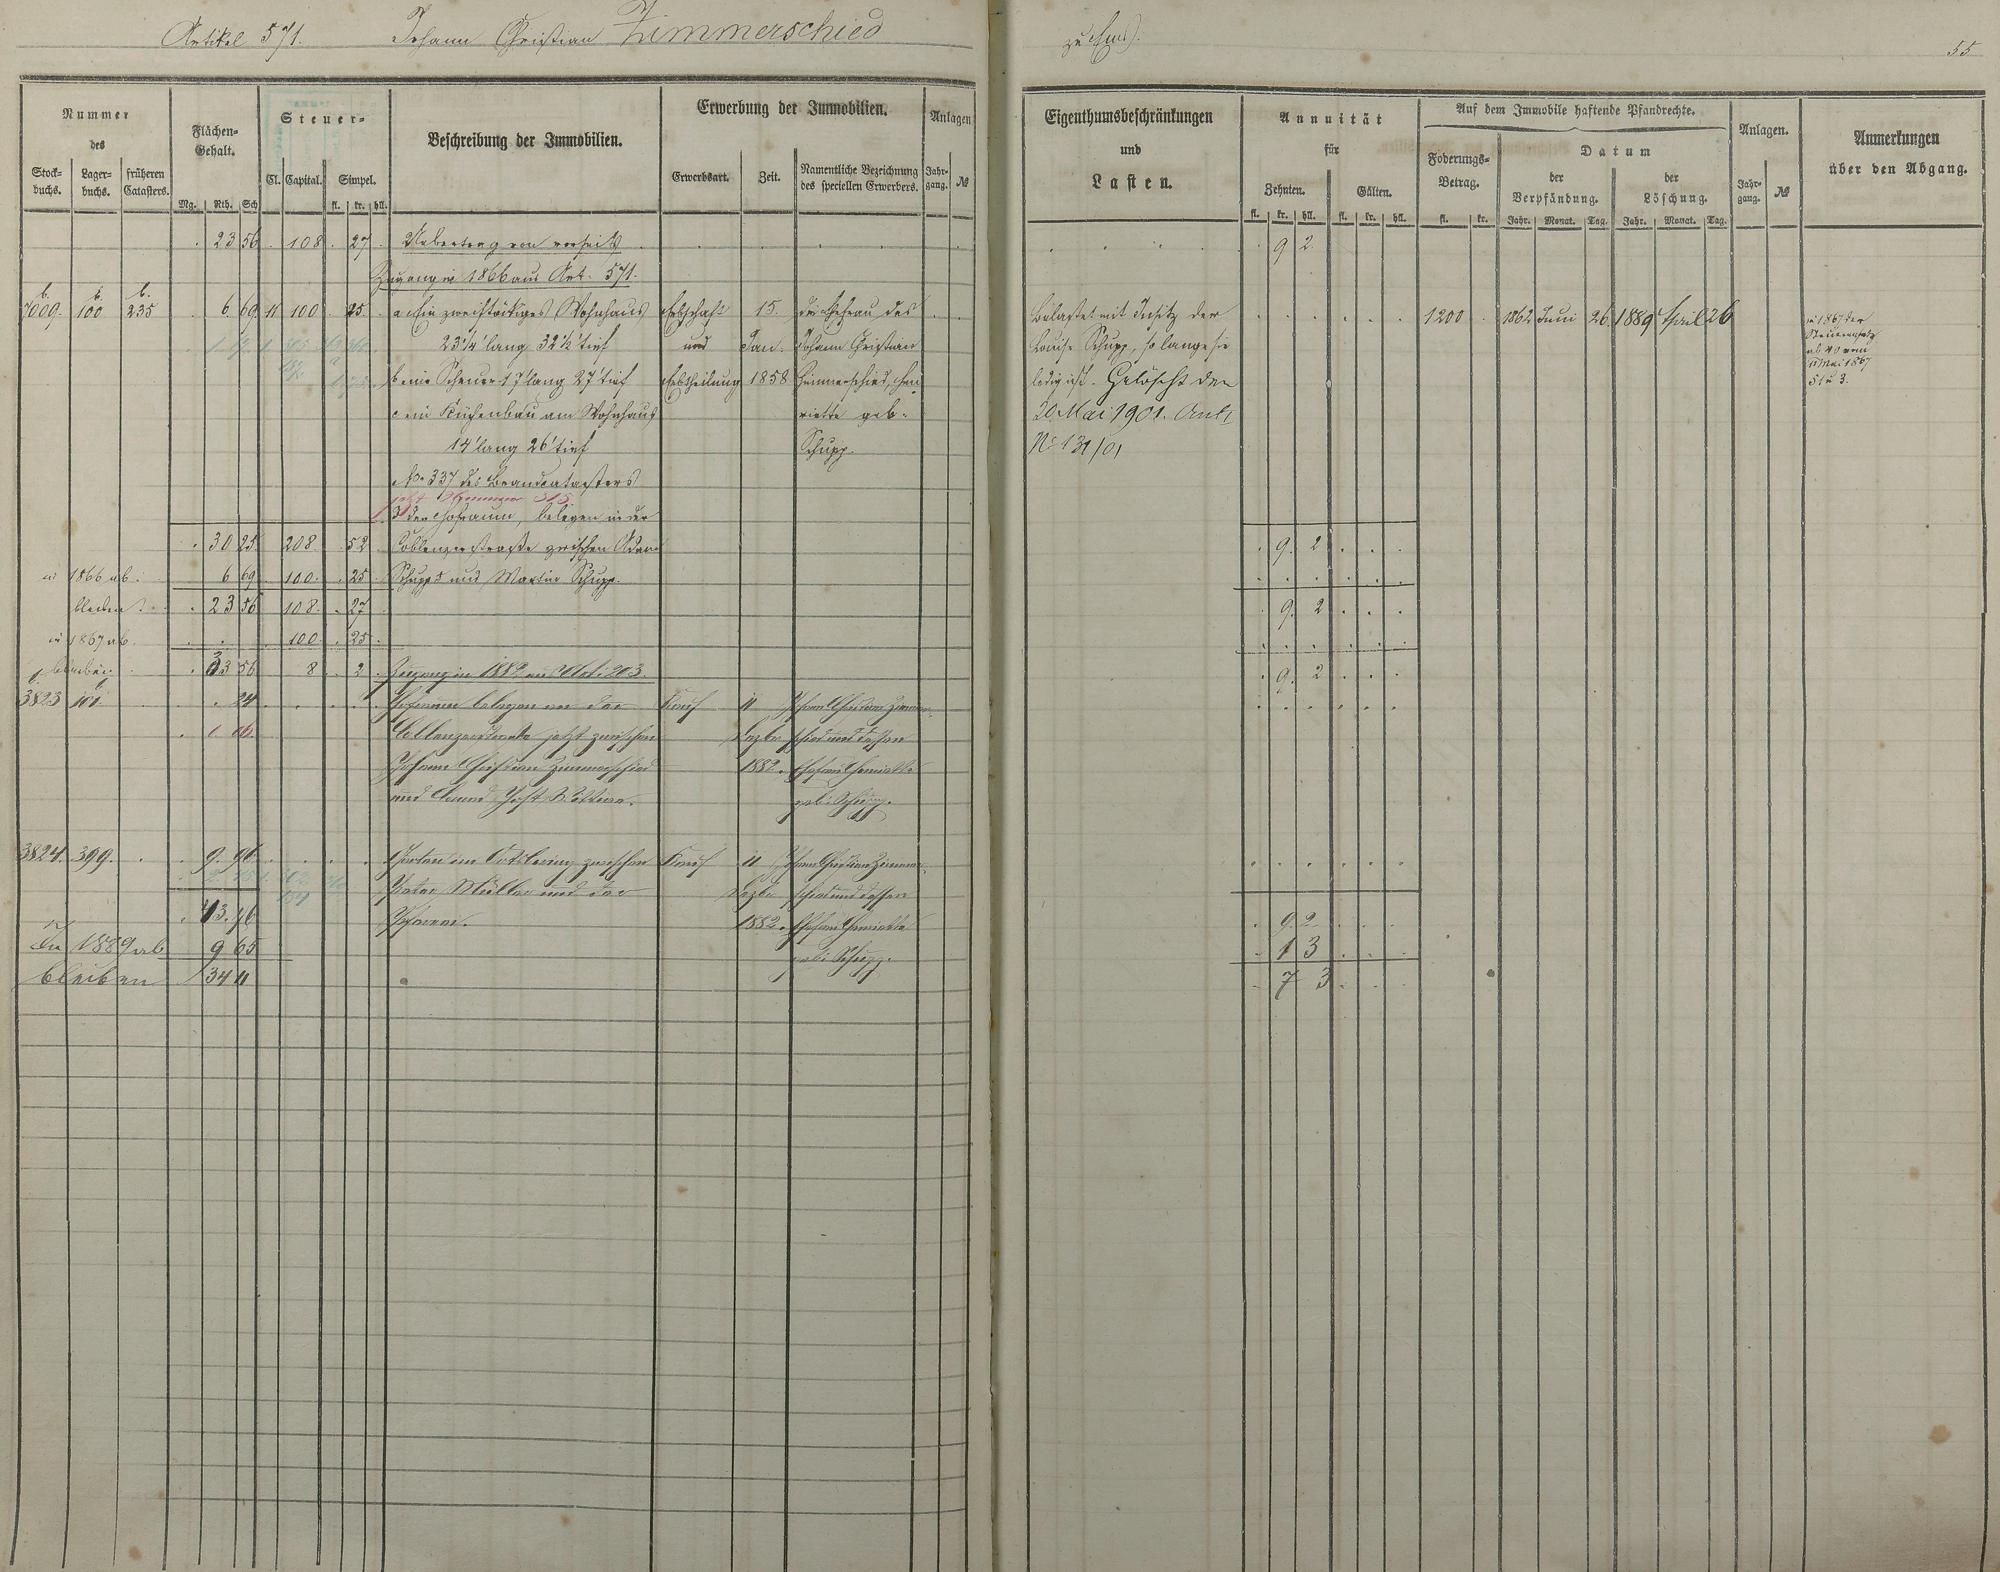 Artikel 571. Johann Christian Zimmerschied zu Ems.
55
Nummer des
Stock-buchs. Lager-buchs. früheren Catasters.
Flächen-Gehalt.
Mg. Rth. Sch
Steuer-
Cl. Capital. Simpel.
fl. kr. hll.
Beschreibung der Immobilien.
Erwerbung der Immobilien.
Erwerbsart. Zeit. Namentliche Bezeichnung des speciellen Erwerbers.
Anlagen
Jahr-gang. №
Eigenthumsbeschränkungen und Lasten.
Annuität für
Zehnten. Gülten.
fl. kr. hll. fl. kr. hll.
Auf dem Immobile haftende Pfandrechte.
Foderungs-Betrag.
fl. kr.
Datum
der Verpfändung. der Löschung.
Jahr. Monat. Tag. Jahr. Monat. Tag.
Anlagen.
Jahr-gang. №
Anmerkungen über den Abgang.
23 56 108 27 Uebertrag von vorseits 9 2
Zugang in 1866 aus Art. 571.
b. b. b.
7009. 100 235 6 69 11 100 25 a. Ein zweistöckiges Wohnhaus Erbschaft 15. die Ehefrau des
23 1/4' lang 32 1/2' tief und Jan. Johann Christian
b. eine Scheuer 17' lang 27' tief Erbtheilung 1858 Zimmerschied, Hen
c. ein Küchenbau am Wohnhaus riette geb.
14' lang 26' tief Schupp.
No. 337 des Brandcatasters
d. der Hofraum, belegen in der
30 25 208 52 Coblenzerstraße zwischen Adam
in 1866 ab. 6 69 100 25 Schupp und Martin Schupp.
bleiben 23 56 108 27
in 1867 ab. 100 25
bleiben 33 56 8 2 Zugang in 1882 aus Art. 203.
3823 101 24 Hofraum belegen an der Kauf 11 Johann Christian Zimmer-
Coblenzerstraße jetzt zwischen Dezbr schied und dessen
Johann Christian Zimmerschied 1882. Ehefrau Henriette
und geb. Schupp.
3824. 399. 9. 96 Garten im zwischen Kauf 11 Johann Christian Zimmer-
Peter Müller und der Dezbr schied und dessen
43. 76 1882. Ehefrau Henriette
In 1889 ab 9 65 geb. Schupp.
bleiben 34 11
Belastet mit Insitz der
Louise Schupp, so lange sie
ledig ist. Gelöscht den
20. Mai 1901.
No 131/01
1200 1862 Juni 26. 1889 April 26
in 1867 der
ab
Mai 1867
9. 2
9. 2
9. 2
9. 2
1 3
7 3